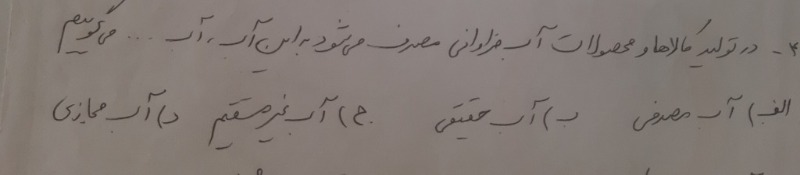 ۴- در تولید کالاها و محصولات آب فراوانی مصرف می‌شود به این آب، آب ... می‌گوییم
الف) آب مصرفی ب) آب حقیقی ج) آب غیرمستقیم د) آب مجازی